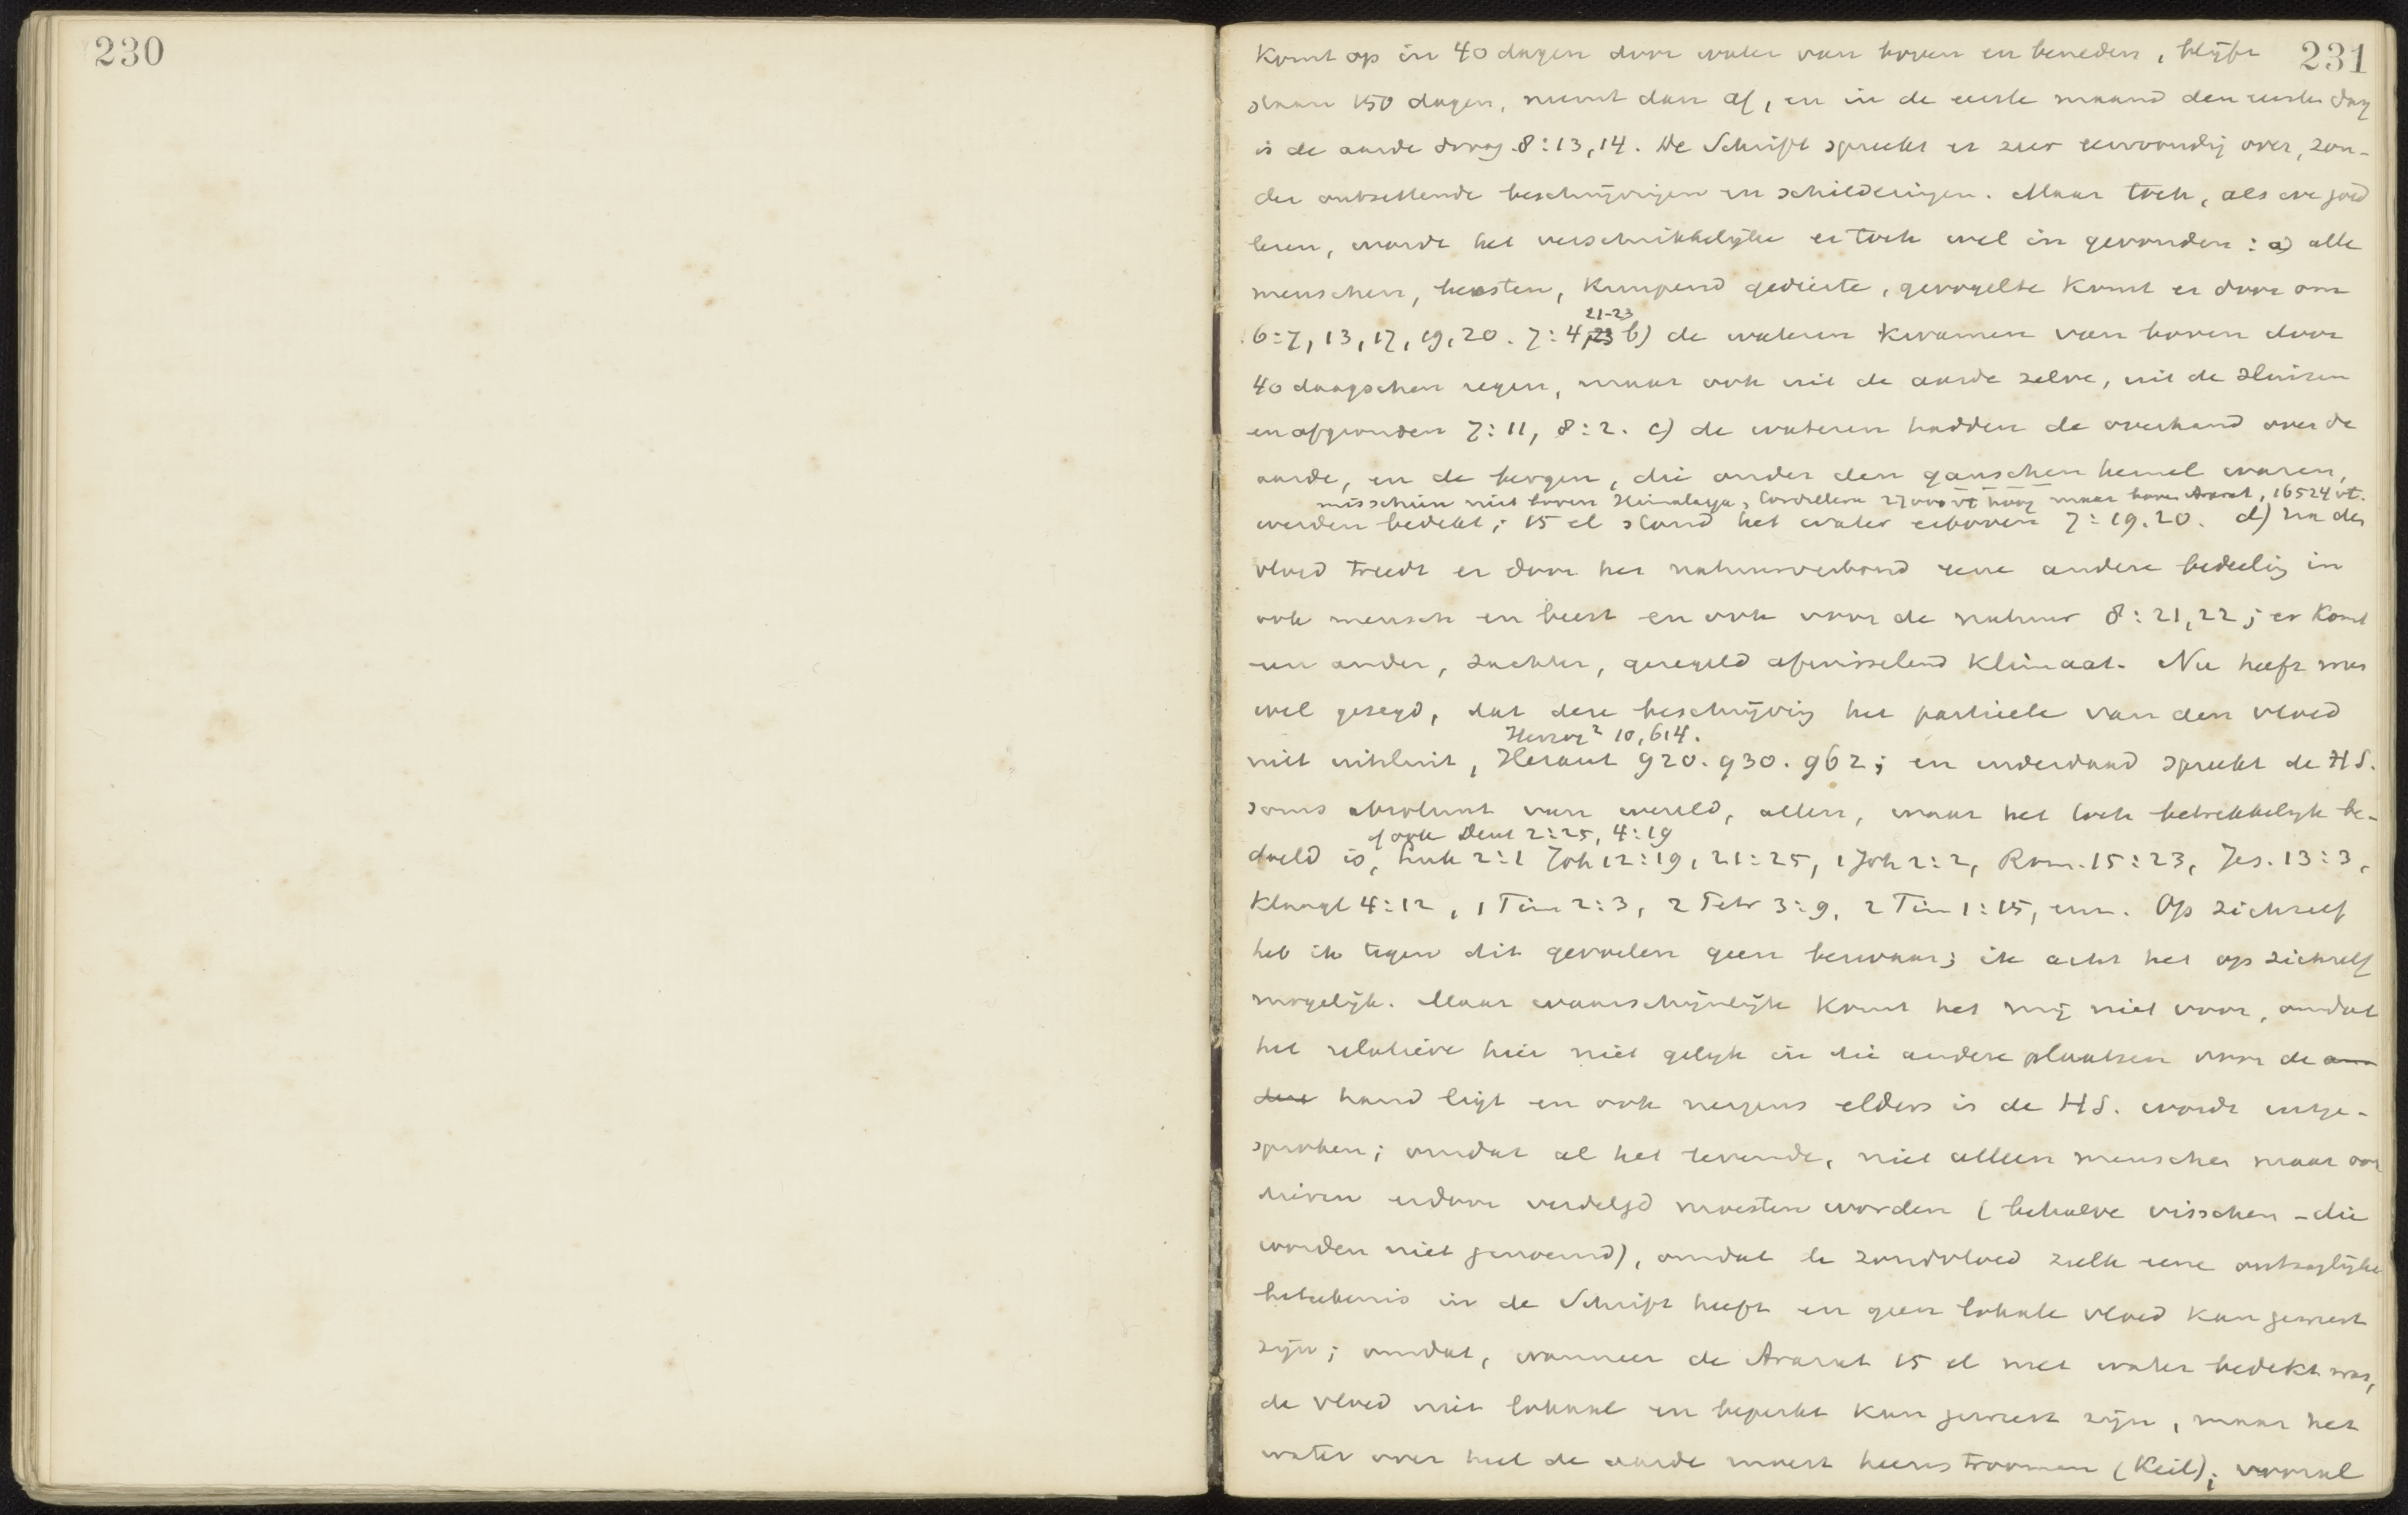 230
231
Komt op in 40 dagen door water van boven en beneden, blijft
staan 150 dagen, neemt dan af, en in de eerste maand den eersten dag
is de aarde droog. 8:13,14. De Schrift spreekt er zeer eenvoudig over, zon-
der ontzettende beschrijvingen en schilderingen. Maar toch, als we goed
lezen, wordt het verschrikkelijke er toch wel in gevonden: a) alle
menschen, beesten, kruipend gedierte, gevogelte komt er door om
21-23
6:7, 13, 17, 19, 20. 7:4, 23 b) de wateren kwamen van boven door
40 daagschen regen, maar ook uit de aarde zelve, uit de sluizen
en afgronden 7:11, 8:2. c) de wateren hadden de overhand over de
aarde, en de bergen, die onder den ganschen hemel waren,
misschien niet boven Himalaya, Cordillera 27000 vt hoog maar boven Ararat, 16524 vt.
werden bedekt; 15 el stond het water erboven 7:19.20. d) na den
vloed treedt er door het natuurverbond eene andere bedeelig in
ook mensch en beest en ook voor de natuur 8:21,22; er komt
een ander, zachter, geregeld afwisselend klimaat. Nu heeft men
wel gezegd, dat deze beschrijvig het partieele van den vloed
Herzog² 10,614.
niet uitsluit, Heraut 920. 930. 962; en inderdaad spreekt de H S.
soms absoluut van wereld, allen, waar het toch betrekkelijk be-
cf ook Deut 2:25, 4:19
doeld is, Luk 2:1 Joh 12:19, 21:25, 1 Joh 2:2, Rom. 15:23, Jes. 13:3,
Klaagl 4:12, 1 Tim 2:3, 2 Petr 3:9, 2 Tim 1:15, enz. Op zichzelf
heb ik tegen dit gevoelen geen bezwaar; ik acht het op zichzelf
mogelijk. Maar waarschijnlijk komt het mij niet voor, omdat
het relatieve hier niet gelijk in die andere plaatsen voor de an
dere hand ligt en ook nergens elders in de H S. wordt uitge-
sproken; omdat al het levende, niet alleen menschen maar ook
dieren erdoor verdelgd moesten worden (behalve visschen – die
worden niet genoemd), omdat de zondvloed zulk eene ontzaglijke
beteekenis in de Schrift heeft en geen lokale vloed kan geweest
zijn; omdat, wanneer de Ararat 15 el met water bedekt was,
de vloed niet lokaal en beperkt kan geweest zijn, maar het
water over heel de aarde moest heenstroomen (Keil); vooral